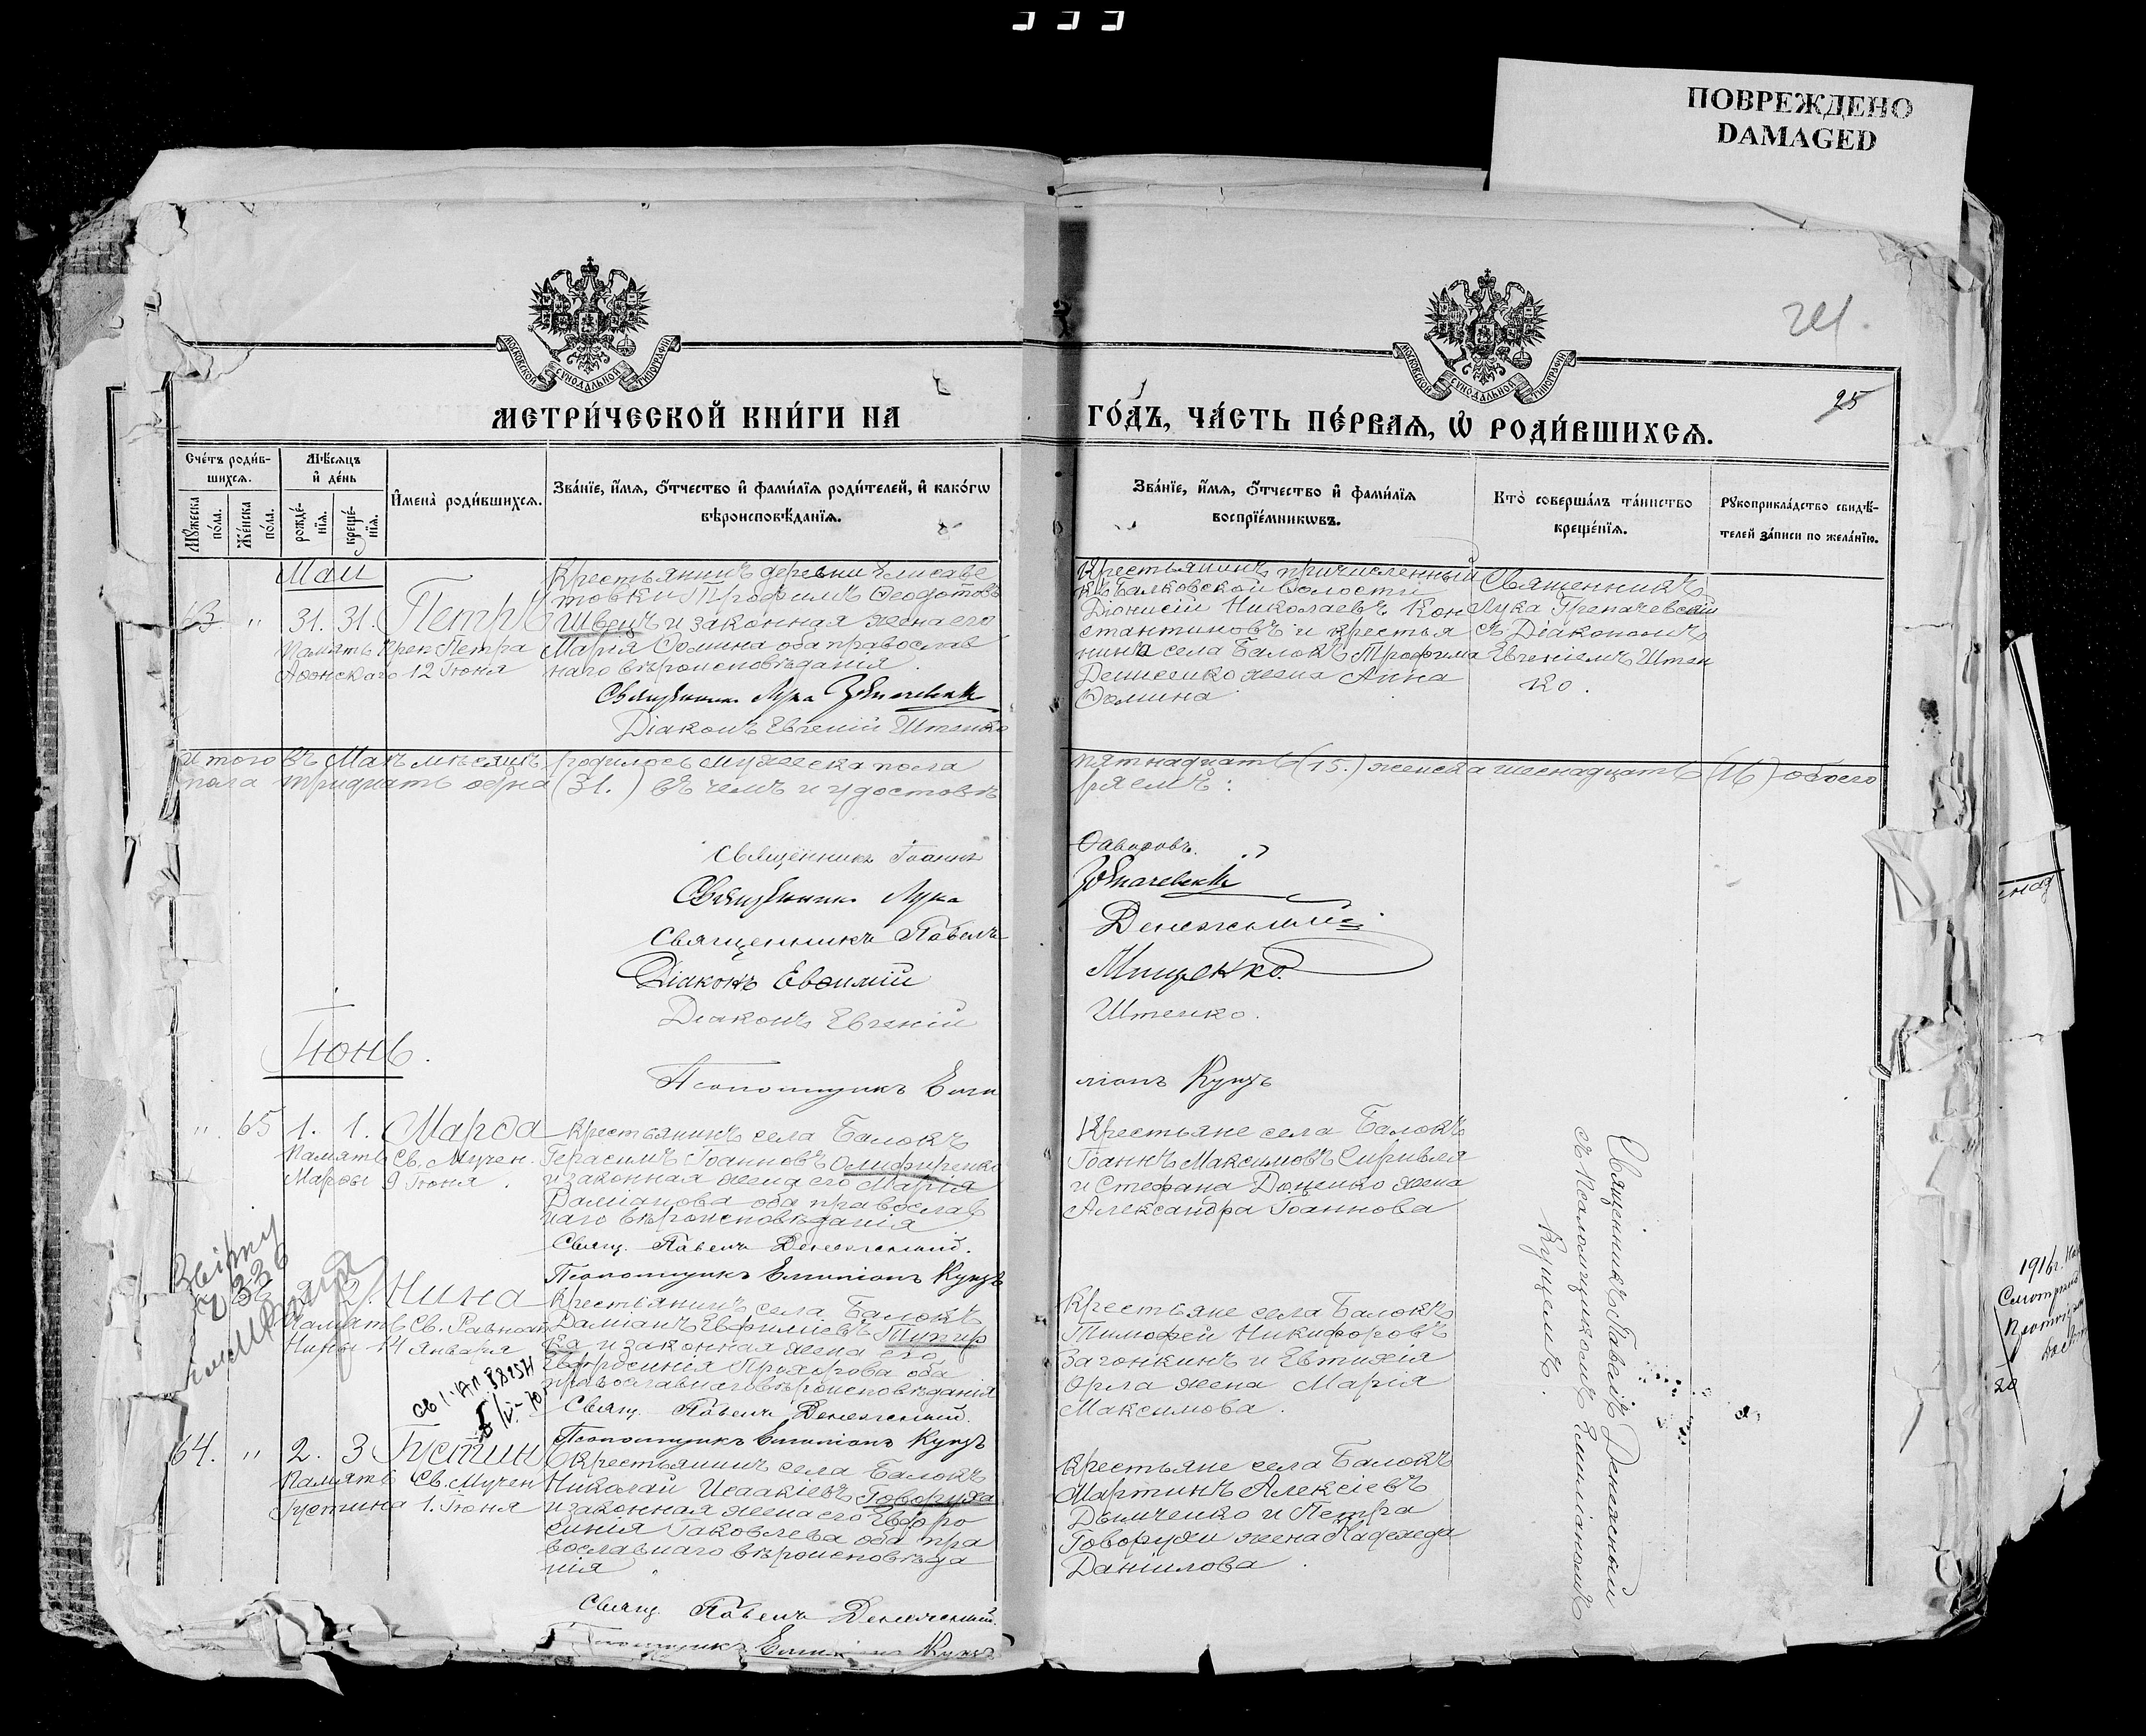 ПОВРЕЖДЕНО
DAMAGED
МОСКОВСКОЙ СѴНОДАЛЬНОЙ ТИПОГРАФІИ
МОСКОВСКОЙ СѴНОДАЛЬНОЙ ТИПОГРАФІИ
25
МЕТРИ́ЧЕСКОЙ КНИ́ГИ НА
ГО́ДЪ, ЧА́СТЬ ПЕ́РВАѦ, Ѡ҆ РОДИ́ВШИХСѦ.
Сче́тъ роди́в-
шихсѧ.
Мꙋ́жеска
по́ла.
Же́нска
по́ла.
Мѣ́сѧцъ
и҆ де́нь
рожде́-
нїѧ.
креще́-
нїѧ.
И҆мена̀ роди́вшихсѧ.
Зва́нїе, и҆́мѧ, ѻ҆́тчество и҆ фами́лїѧ роди́телей, и҆ како́гѡ
вѣроисповѣ́данїѧ.
Зва́нїе, и҆́мѧ, ѻ҆́тчество и҆ фами́лїѧ
воспрїе́мникѡвъ.
Кто̀ соверша́лъ та́инство
креще́нїѧ.
Рꙋкоприкла́дство свидѣ́-
телей за́писи по жела́нїю.
Май
63. " 31. 31. Петръ
Память Преп. Петра
Аѳонскаго 12 Іюня
Крестьянинъ деревни Елисаве
товки Трофимъ Ѳеодотовъ
Швецъ и законная жена его
Марія Ѳомина оба православ
наго вѣроисповѣданія.
Священникъ Лука
Діаконъ Евгеній Штенко
Крестьянинъ причисленный
къ Балковской волости
Діонисій Николаевъ Кон
стантиновъ и крестья
нина села Балокъ Трофима
Денисенко жена Анна
Ѳомина
Священникъ
Лука
съ Діакономъ
Евгеніемъ Штен
ко.
Итого въ Маѣ мѣсяцѣ родилось мужеска пола пятнадцать (15.) женска шеснадцать (16) обоего
пола тридцать одна (31.) въ чемъ и удостовѣ
ряемъ:
Священникъ Іоаннъ Ѳаворовъ.
Священникъ Лука
Священникъ Павелъ
Діаконъ Евѳимій Мищенко.
Діаконъ Евгеній Штенко.
Псаломщикъ Еми
ліанъ Куцъ
Іюнь.
" 65 1. 1. Марѳа
Память Св. Мучен.
Марѳы 9 Іюня.
Крестьянинъ села Балокъ
Герасимъ Іоанновъ
и законная жена его Марія
Даміанова оба православ
наго вѣроисповѣданія
Свящ. Павелъ
Псаломщикъ Емиліанъ Куцъ
Крестьяне села Балокъ
Іоаннъ Максимовъ
и Стефана Доценко жена
Александра Іоаннова
2. Нина
Память Св. Равноап
Нины 14 Января
Крестьянинъ села Балокъ
Даміанъ Евфиміевъ
ка и законная жена его
Евфросинія Прохорова оба
православнаго вѣроисповѣданія
Свящ. Павелъ
Псаломщикъ Емиліанъ Куцъ
Крестьяне села Балокъ
Тимофей Никифоровъ
Загонкинъ и Евтихія
Орла жена Марія
Максимова.
64. " 2. 3 Іустинъ
Память Св. Мучен
Іустина 1. Іюня
Крестьянинъ села Балокъ
Николай Исаакіевъ Говоруха
и законная жена его Евфро
синія Іаковлева оба пра
вославнаго вѣроисповѣда
нія
Свящ. Павелъ
Псаломщикъ Емиліанъ Куцъ
Крестьяне села Балокъ
Мартинъ Алексіевъ
Демченко и Петра
Говорухи жена Надежда
Даніилова.
Священникъ Павелъ
съ Псаломщикомъ Емиліаномъ
Куцемъ.
1916г.